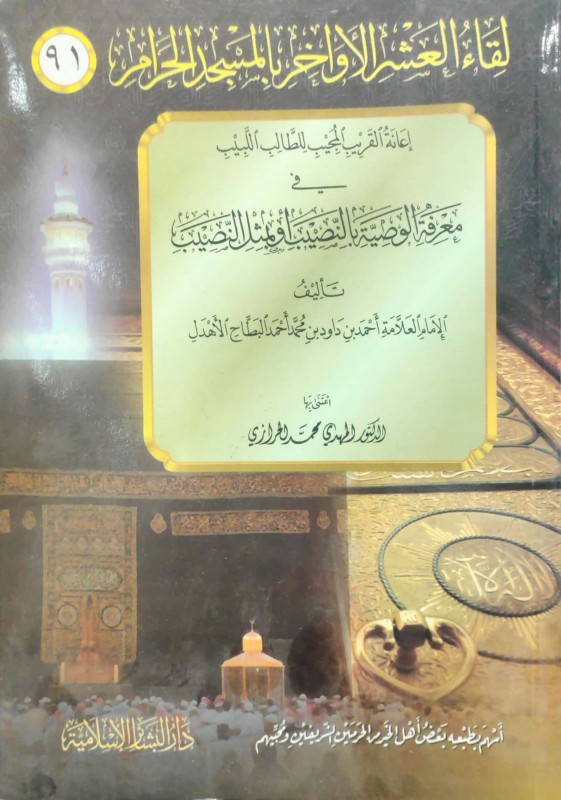 لقاء العشر الأواخر بالمسجد الحرام
٩١
إعانة القريب المجيب للطالب اللبيب
في
معرفة الوصية بالنصيب أو بمثل النصيب
تأليف
الإمام العلامة أحمد بن داود بن محمد أحمد البطاح الأهدل
اعتنى بها
الدكتور المهدي محمد الحرازي
أسهم بطبعه بعض أهل الخير من الحرمين الشريفين ومحبيهم
دار البشائر الإسلامية